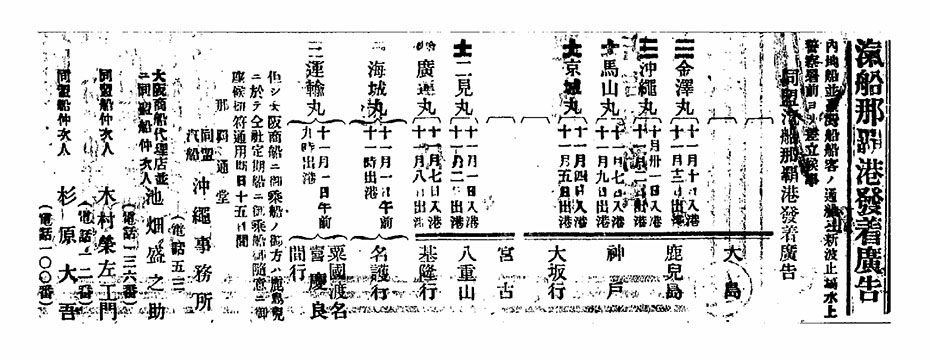 汽船那覇港發着廣告
内地船並 船船客ノ 新波止場水上
警察署前ヨリ差立候事
同盟汽船那覇港發着廣告
金澤丸
沖繩丸 十月卅一日入港
馬山丸 十一月七日入港 十一月九日出港
京城丸 十一月四日入港 十一月五日出港
二見丸 十一月一日入港 十一月二日出港
廣運丸 十一月七日入港 十一月八日出港
大島
鹿兒島
神戸
大坂行
宮古
八重山
基隆行
海城丸 十一月一日午前十一時出港 名護行
運輸丸 十一月一日午前九時出港 粟國渡名喜慶良間行
但シ大阪商船ニ御乘船ノ御方ハ鹿兒島
ニ於テ全社定期船ニ御乘船御隨意ニ御
座候切符通用期日十五日間
那覇通堂
同盟汽船 沖繩事務所
(電話五三)
大阪商船代理店並ニ同盟船仲次人 池畑盛之助
(電話一三六番)
同盟船仲次人 木村榮左エ門
(電話一二一番)
同盟船仲次人 杉原大吾
(電話一〇〇番)